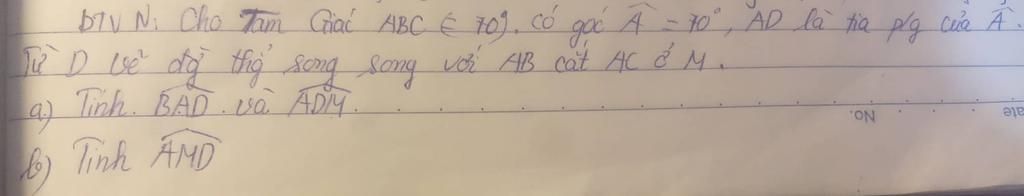 BTVN: Cho Tam Giác ABC có góc Â = 70°, AD là tia p/g của Â.
Từ D vẽ đg thg song song với AB cắt AC ở M.
a) Tính BAD và ADM.
No.
ate
b) Tính AMD